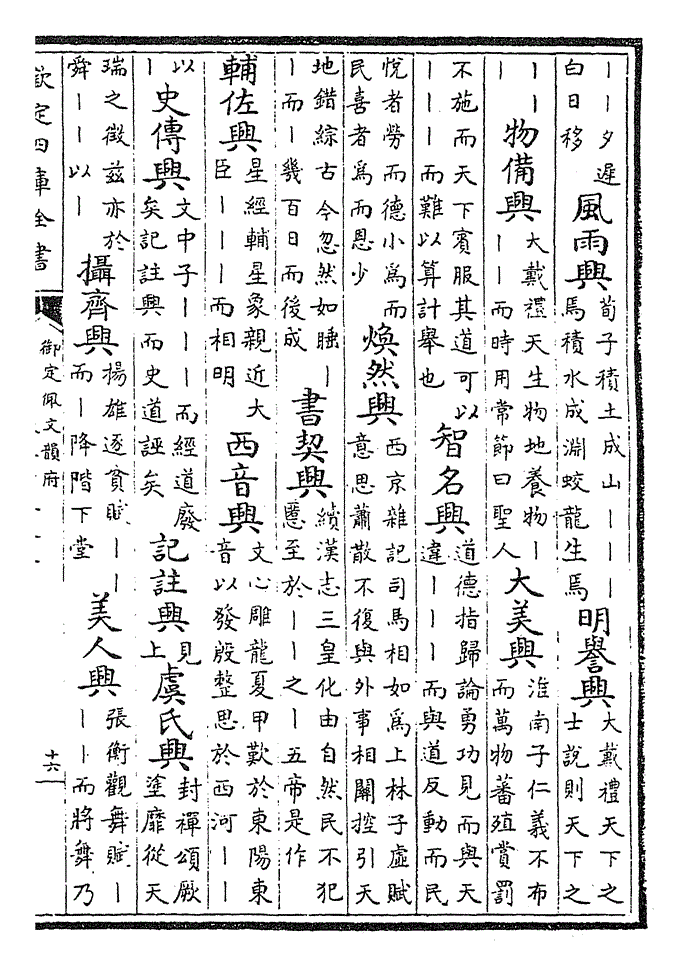 ｜｜夕遲白日移 風雨興 荀子積土成山｜｜｜焉積水成淵蛟龍生焉 明譽興 大戴禮天下之士說則天下之
｜｜｜ 物備興 大戴禮天生物地養物｜｜｜而時用常節曰聖人 大美興 淮南子仁義不布而萬物蕃殖賞罰
不施而天下賓服其道可以｜｜｜而難以算計舉也 智名興 道德指歸論勇功見而與天違｜｜｜而與道反動而民
悅者勞而德小為而民喜者為而恩少 煥然興 西京雜記司馬相如為上林子虛賦意思蕭散不復與外事相關控引天
地錯綜古今忽然如睡｜｜而｜幾百日而後成 書契興 續漢志三皇化由自然民不犯慝至於｜｜之｜五帝是作
輔佐興 星經輔星象親近大臣｜｜｜而相明 西音興 文心雕龍夏甲歎於東陽東音以發殷整思於西河｜｜
以｜ 史傳興 文中子｜｜｜而經道廢矣記註興而史道誣矣 記註興 見上 虞氏興 封禪頌厥塗靡從天
瑞之徵茲亦於舜｜｜以｜ 攝齊興 揚雄逐貧賦｜｜而｜降階下堂 美人興 張衡觀舞賦｜｜｜而將舞乃
欽定四庫全書 御定佩文韻府 十六